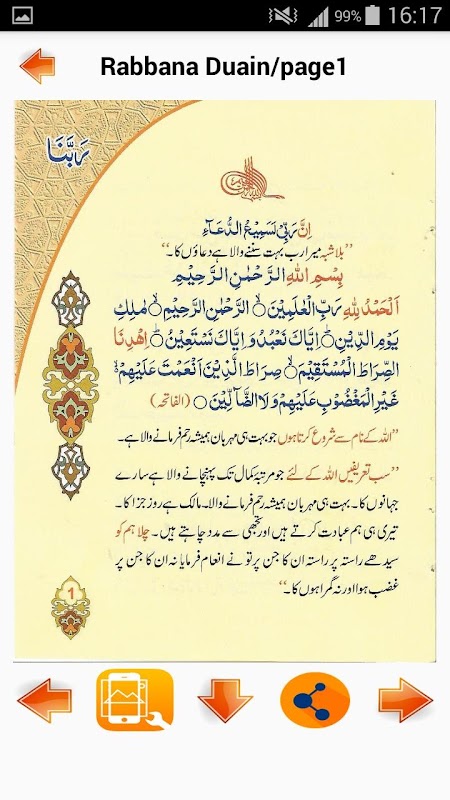 99% 16:17
Rabbana Duain/page1
رَبَّنَا
اِنَّ رَبِّيْ لَسَمِيْعُ الدُّعَآءِ
”بلاشبہ میرا رب بہت سننے والا ہے دعاؤں کا۔“
بِسْمِ اللّٰهِ الرَّحْمٰنِ الرَّحِيْمِ
اَلْحَمْدُ لِلّٰهِ رَبِّ الْعٰلَمِيْنَ ۙ الرَّحْمٰنِ الرَّحِيْمِ ۙ مٰلِكِ
يَوْمِ الدِّيْنِ ؕ اِيَّاكَ نَعْبُدُ وَ اِيَّاكَ نَسْتَعِيْنُ ؕ اِهْدِنَا
الصِّرَاطَ الْمُسْتَقِيْمَ ۙ صِرَاطَ الَّذِيْنَ اَنْعَمْتَ عَلَيْهِمْ ۙ
غَيْرِ الْمَغْضُوْبِ عَلَيْهِمْ وَلَا الضَّآلِّيْنَ (الفاتحہ)
”اللہ کے نام سے شروع کرتا ہوں جو بہت ہی مہربان ہمیشہ رحم فرمانے والا ہے۔
”سب تعریفیں اللہ کے لئے جو مرتبہ کمال تک پہنچانے والا ہے سارے
جہانوں کا۔ بہت ہی مہربان ہمیشہ رحم فرمانے والا۔ مالک ہے روز جزا کا۔
تیری ہی ہم عبادت کرتے ہیں اور تجھی سے مدد چاہتے ہیں۔ چلا ہم کو
سیدھے راستہ پر راستہ ان کا جن پر تو نے انعام فرمایا نہ ان کا جن پر
غضب ہوا اور نہ گمراہوں کا۔“
1